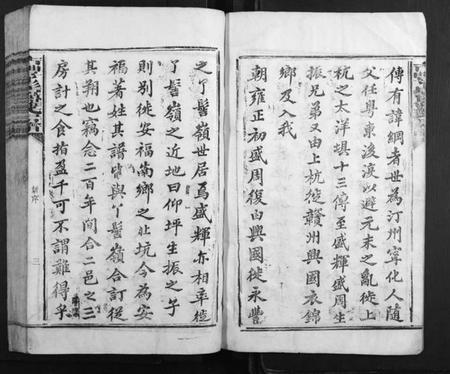 傳有諱綱者世為汀州寧化人隨
父任粵東後淚以避元末之亂徙上
杭之太洋垻十三傳至盛輝盛周生
振兄弟又由上杭徙贛州興國衣錦
鄉及入我
朝雍正初盛周復由興國徙永豐
之丫髻嶺世居焉盛輝亦相率徙
丫髻嶺之近地曰仰坪生振之子
則別徙安福南鄉之北坑今為安
福著姓其譜皆與丫髻嶺合訂從
其朔也竊念二百年間合二邑之三
房計之食指盈千可不謂難得乎
新序
三